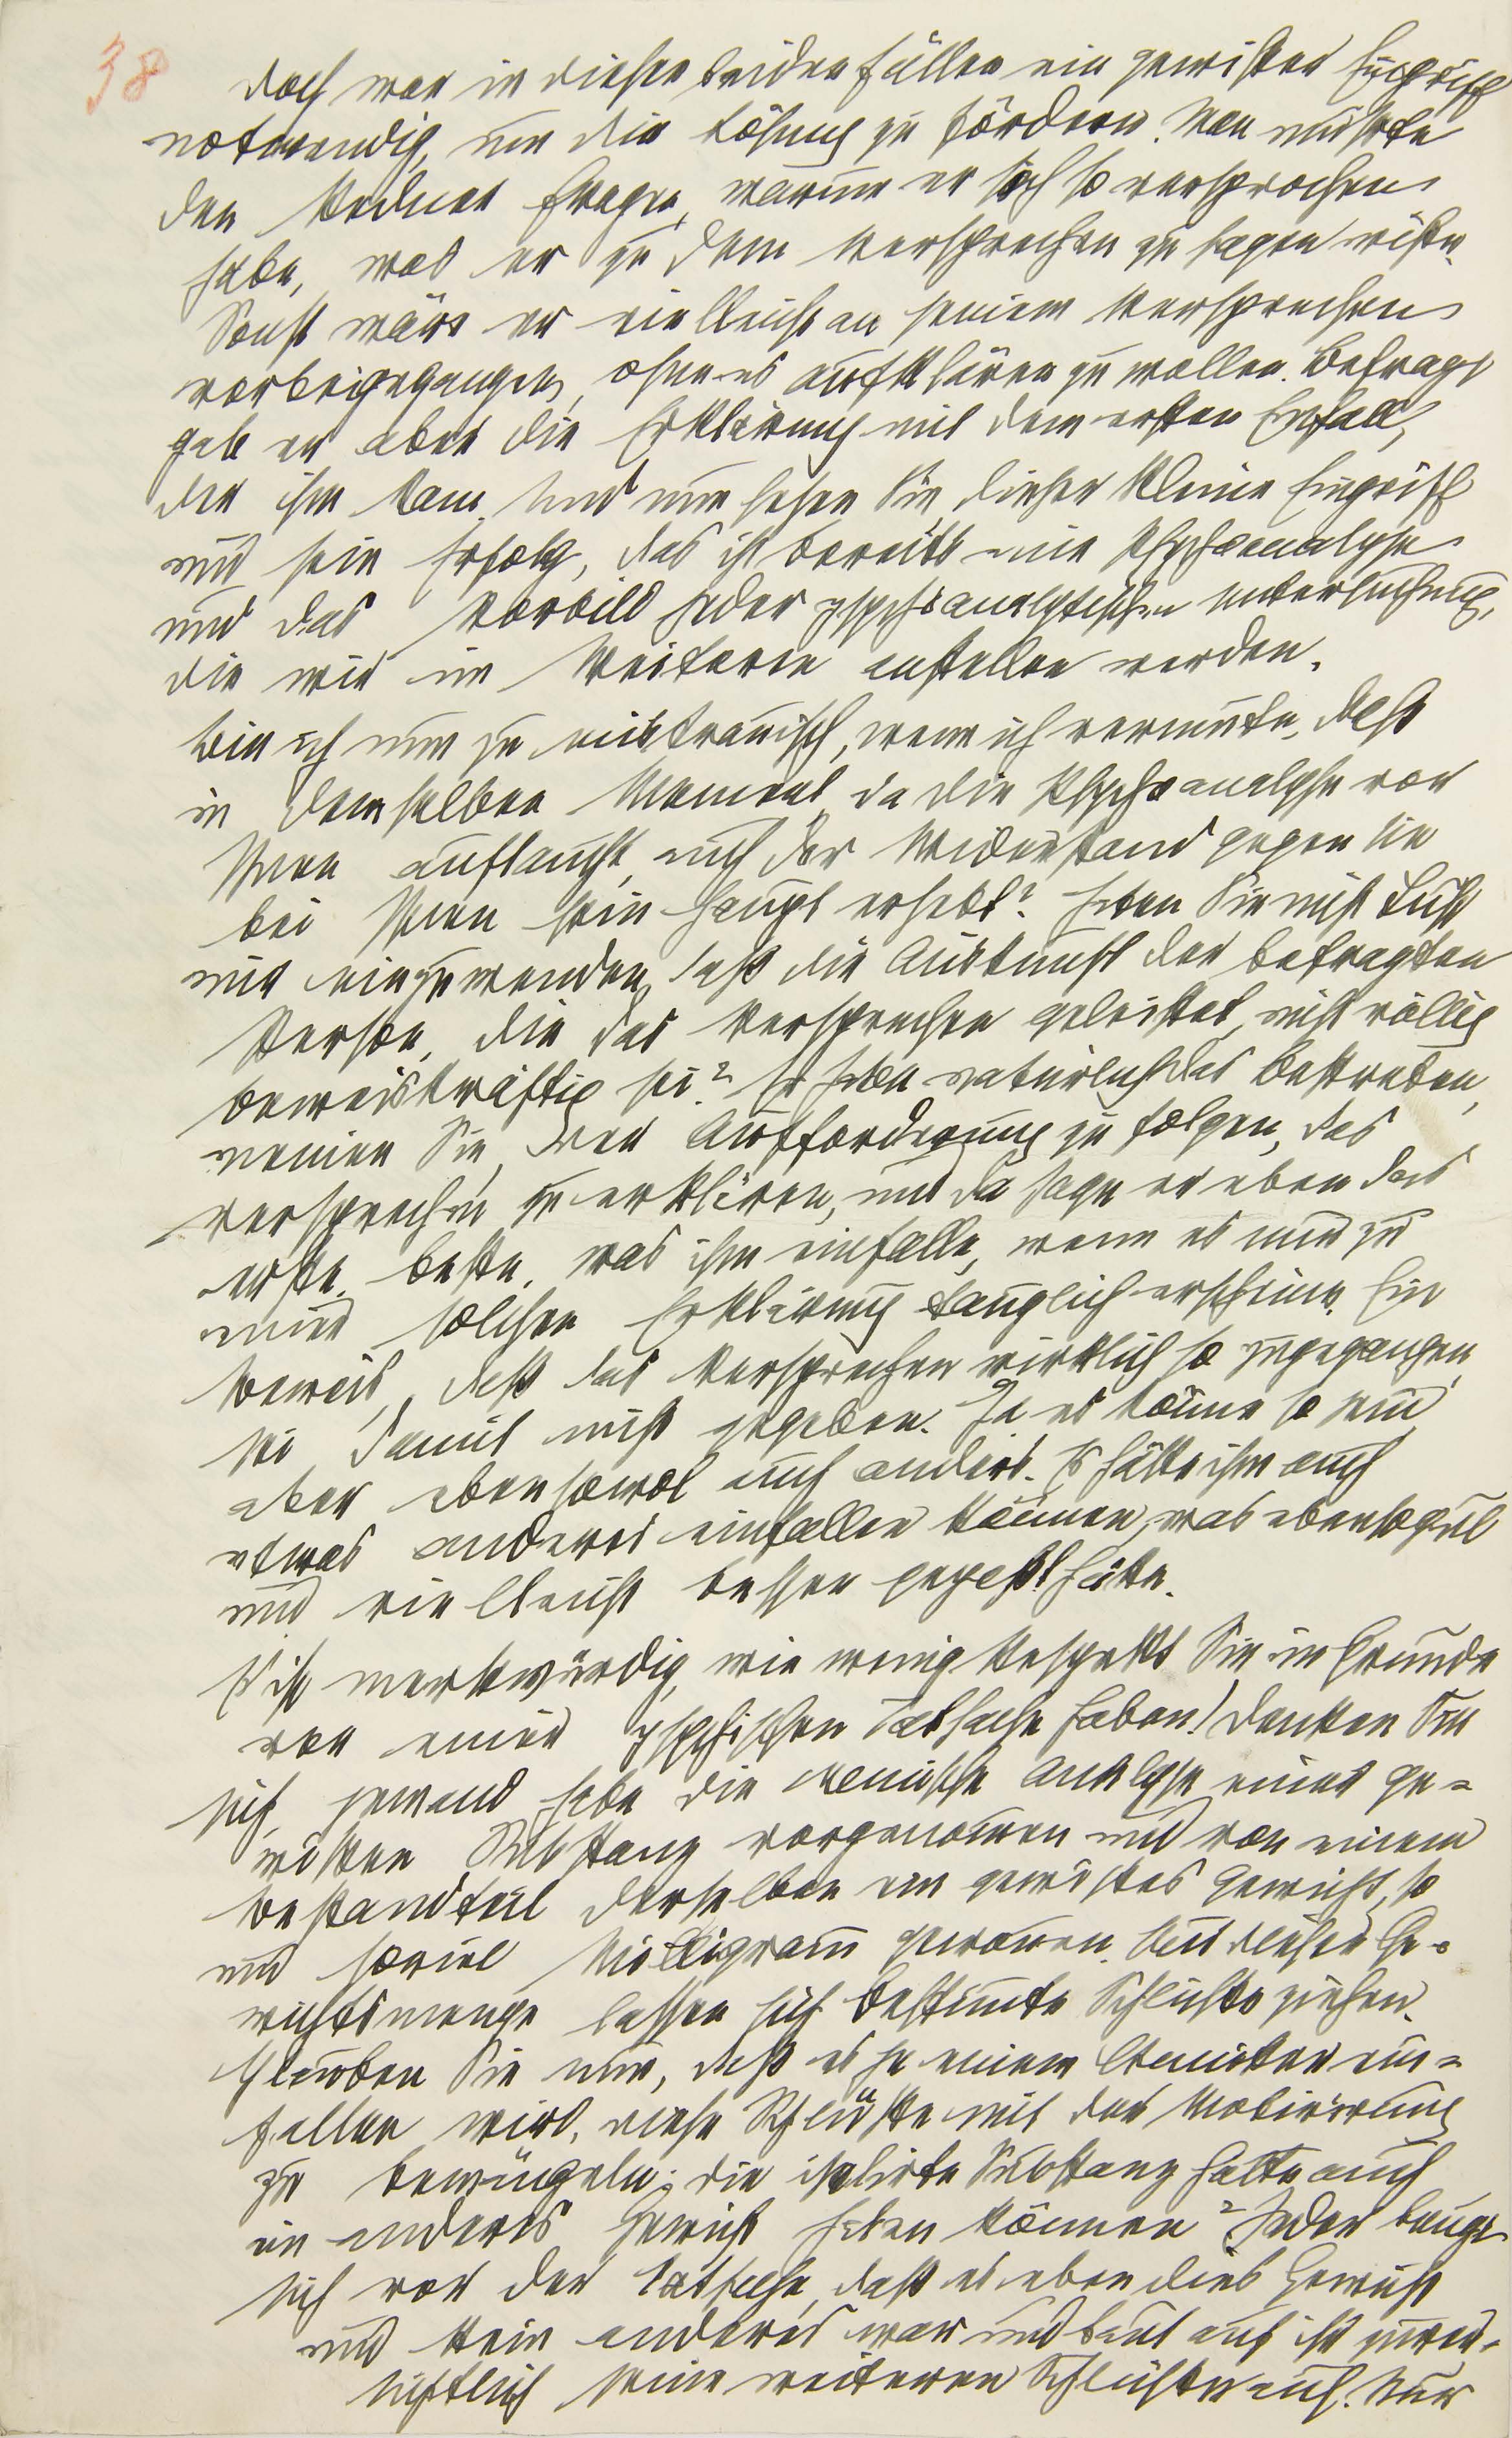 38
Doch war in diesen beiden Fällen ein gewisser Eingriff
notwendig, um die Lösung zu fördern. Man mußte
den Redner fragen, warum er sich so versprochen
habe, was er zu dem Versprechen zu sagen wiße.
Sonst wäre er vielleicht an seinem Versprechen
vorbeigegangen, ohne es aufklären zu wollen. Befragt
gab er aber die Erklärung mit dem ersten Einfall,
der ihm kam. Und nun sehen Sie, dieser kleine Eingriff
und sein Erfolg, das ist bereits eine Psychoanalyse
und das Vorbild jeder psychoanalytischen Untersuchung,
die wir im Weiteren anstellen werden.
Bin ich nun zu mistrauisch, wenn ich vermute, daß
in demselben Moment, da die Psychoanalyse vor
Ihnen auftaucht, auch der Widerstand gegen sie
bei Ihnen sein Haupt erhebt? Haben Sie nicht Lust
mir einzuwenden, daß die Auskunft der befragten
Person, die das Versprechen geleistet, nicht völlig
beweiskräftig sei? Er habe natürlich das Bestreben,
meinen Sie, der Aufforderung zu folgen, das
Versprechen zu erklären, und da sage er eben das
erste beste, was ihm einfalle, wenn es nur zu
einer solchen Erklärung tauglich erscheine. Ein
Beweis, daß das Versprechen wirklich so zugegangen,
sei damit nicht gegeben. Ja es könne so sein,
aber ebensowol auch anders. Es hätte ihm auch
etwas anderes einfallen können, was ebensogut
und vielleicht besser gepaßt hätte.
Es ist merkwürdig, wie wenig Respekt Sie im Grunde
vor einer psychischen Tatsache haben! Denken Sie
sich, jemand habe die chemische Analyse einer ge-
wissen Substanz vorgenommen und von einem
Bestandteil derselben ein gewisses Gewicht, so
und soviel Milligramm gewonnen. Aus dieser Ge-
wichtsmenge lassen sich bestimmte Schlüsse ziehen.
Glauben Sie nun, daß es je einem Chemiker ein-
fallen wird, diese Schlüsse mit der Motivirung
zu bemängeln: die isolirte Substanz hätte auch
ein anderes Gewicht haben können? Jeder beugt
sich vor der Tatsache, daß es eben dies Gewicht
und kein anderes war und baut auf ihr zuver-
sichtlich seine weiteren Schlüsse auf. Nur